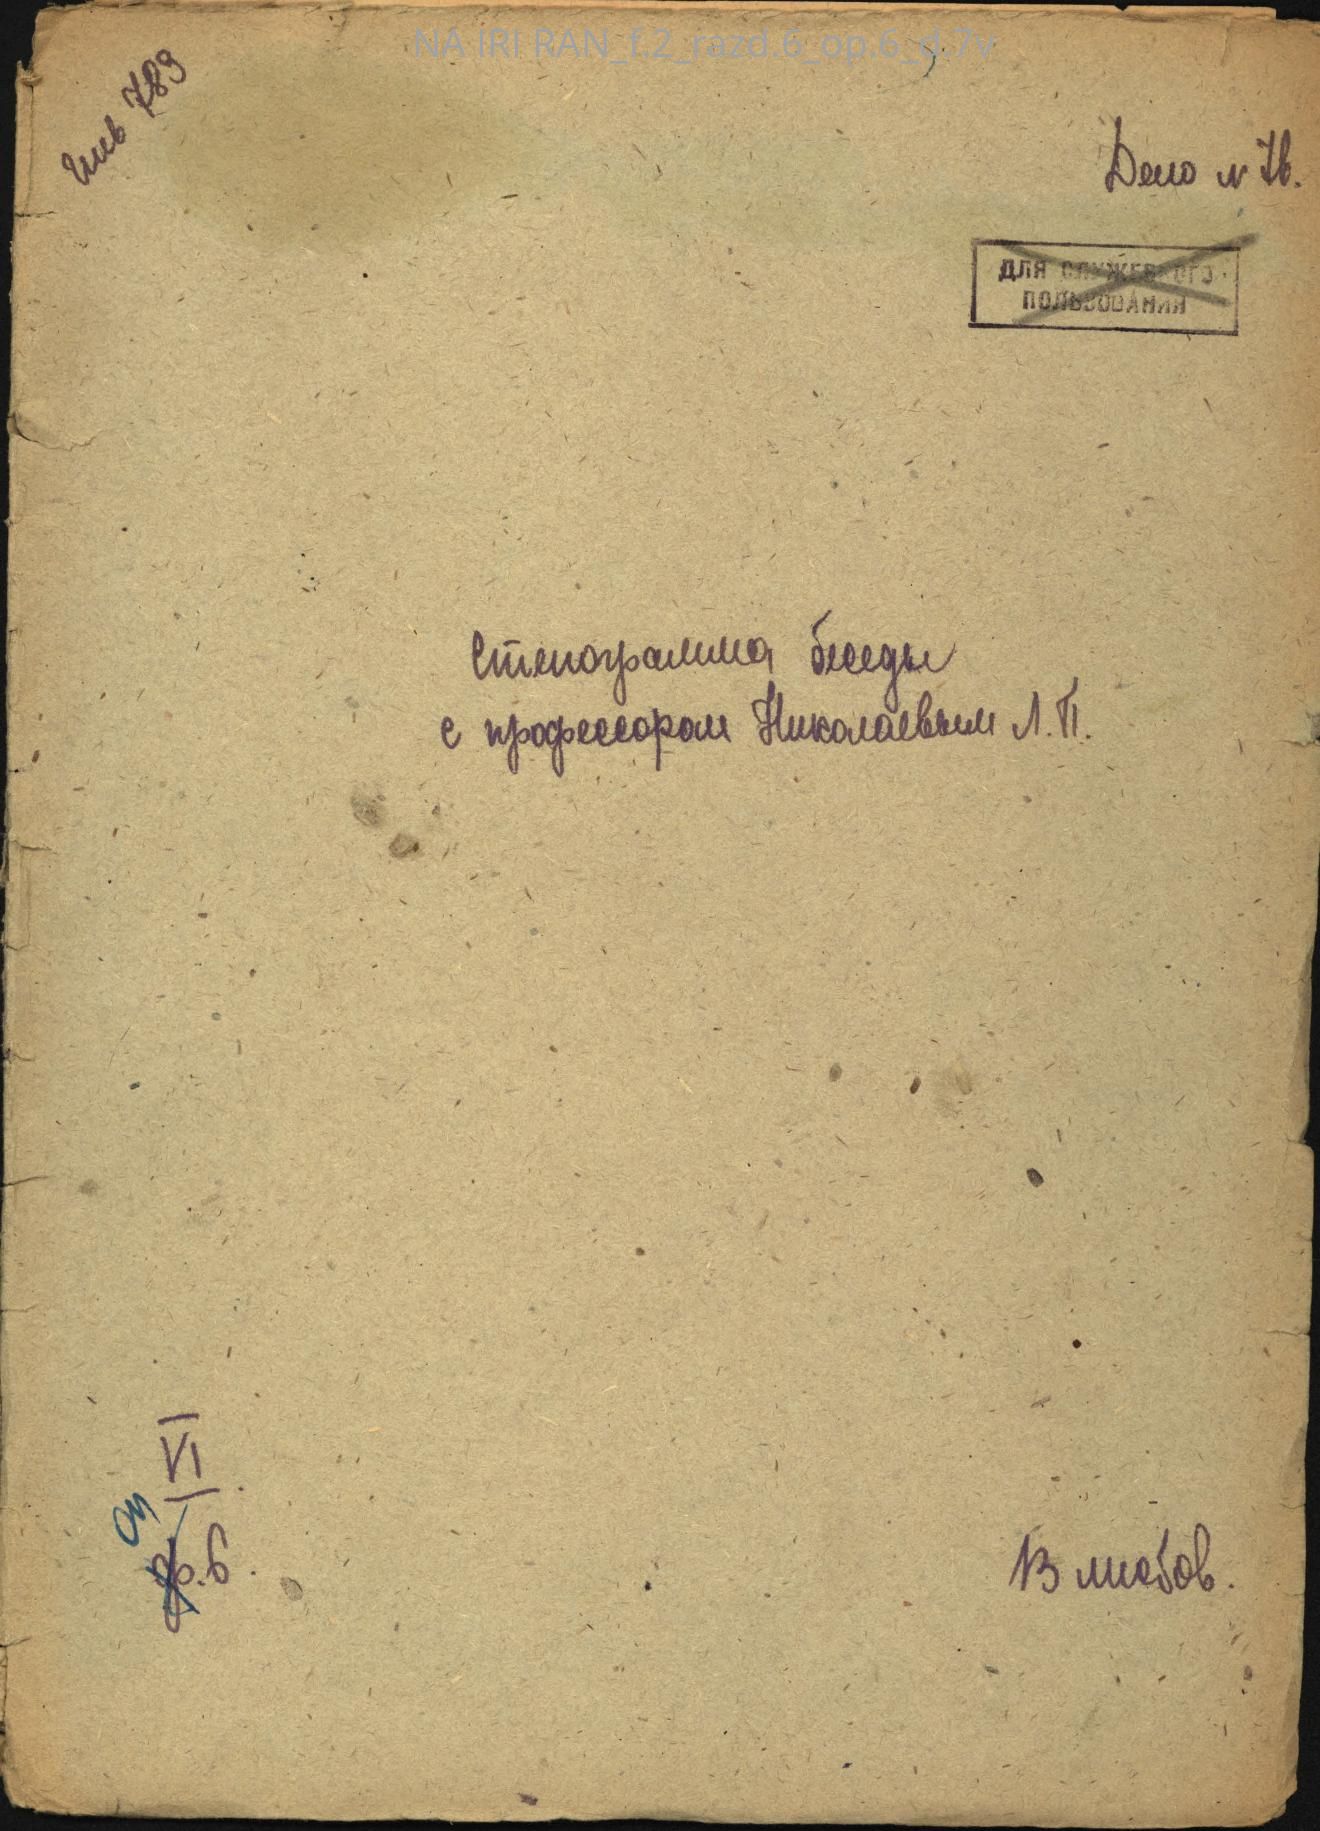 NA IRI RAN_f.2_razd.6_op.6_d.7v
Инв 789
Дело № 7в.
ДЛЯ СЛУЖЕБНОГО
ПОЛЬЗОВАНИЯ
Стенограмма беседы
с профессором Николаевым Л.П.
VI
оп
ф.6.
13 листов.